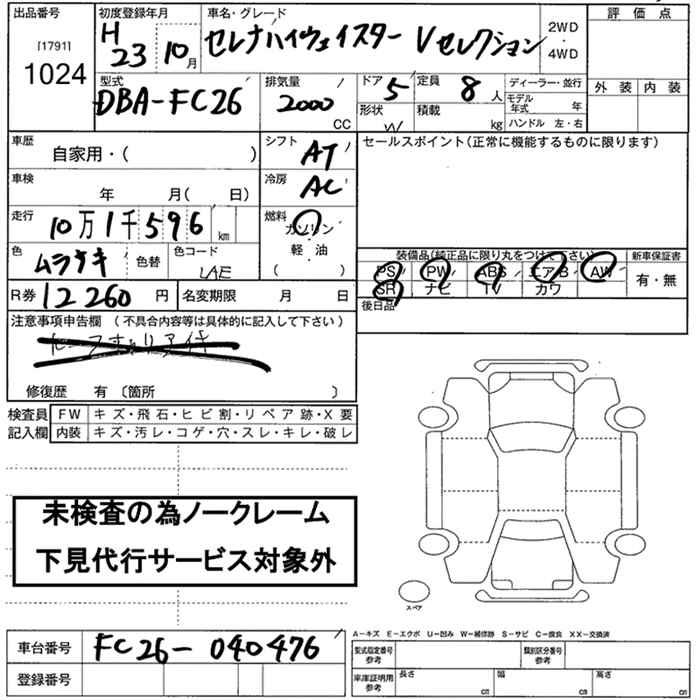 出品番号 初度登録年月 車名・グレード 評価点
[1791] 1024
H 23 10月
セレナハイウェイスター Vセレクション
2WD・4WD
外装 内装
型式 排気量 ドア 定員 ディーラー・並行
DBA-FC26 2000 CC 5 8人
形状 W 積載 kg
モデル年式 年
ハンドル 左・右
車歴 シフト セールスポイント(正常に機能するものに限ります)
自家用・( ) AT
車検 冷房
年 月( 日) AC
走行 燃料
10万1千596km ガソリン・軽・油( )
装備品(純正品に限り丸をつけて下さい) 新車保証書
色 色替 色コード
ムラサキ LAE
PS PW ABS エアB AW 有・無
SR ナビ TV カワ
R券 12260円 名変期限 月 日
後日品
注意事項申告欄(不具合内容等は具体的に記入して下さい)
修復歴 有〔箇所 〕
検査員記入欄
FW キズ・飛石・ヒビ割・リペア跡・X要
内装 キズ・汚レ・コゲ・穴・スレ・キレ・破レ
未検査の為ノークレーム
下見代行サービス対象外
スペア
A-キズ E-エクボ U-凹み W-補修跡 S-サビ C-腐食 XX-交換済
車台番号 FC26-040476
型式指定番号参考 類別区分番号参考
登録番号
車庫証明用参考 長さ cm 幅 cm 高さ cm